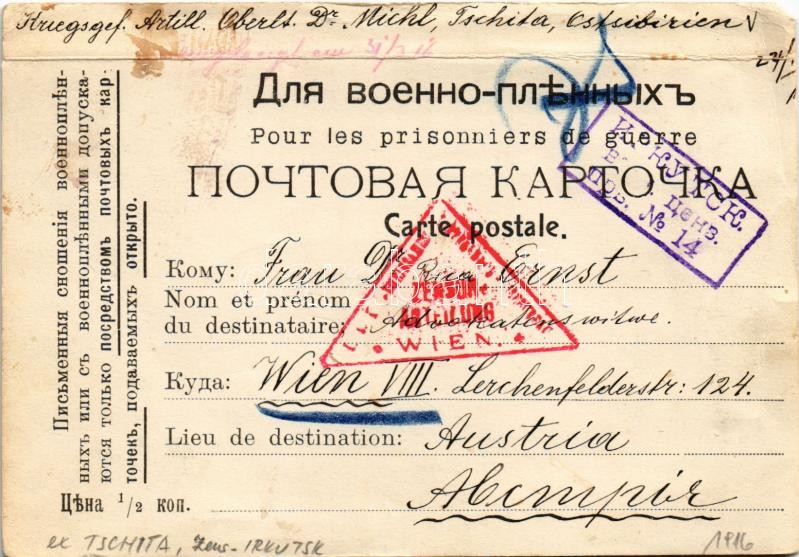 Kriegsgef. Artill. Oberlt. Dr Michl, Tschita, Ostsibirien
Для военно-плѣнныхъ
Pour les prisonniers de guerre
ПОЧТОВАЯ КАРТОЧКА
Carte postale.
ИРКУТСК.
ценз.
№ 14
Кому: Frau Dr Ernst
Nom et prénom
du destinataire: Advokatenswitwe.
ZENSUR
ABTEILUNG
WIEN.
Куда: Wien VIII. Lerchenfelderstr: 124.
Lieu de destination: Austria
Австрія
Письменныя сношенія военноплѣн-
ныхъ или съ военноплѣнными допуска-
ются только посредствомъ почтовыхъ кар-
точекъ, подаваемыхъ открыто.
Цѣна 1/2 коп.
ex TSCHITA, Zens-IRKUTSK
1916